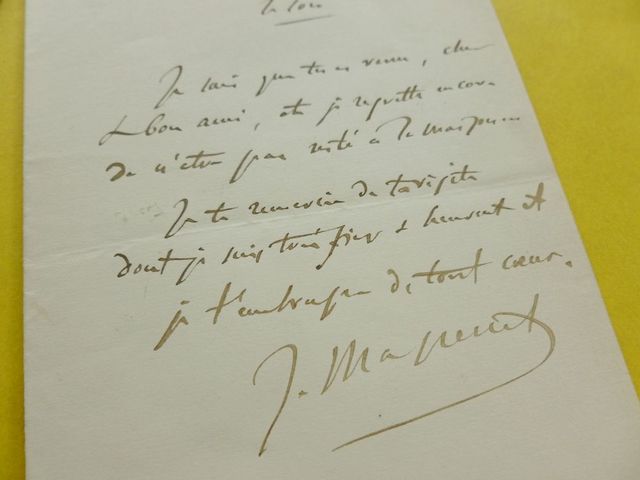 le soir
Je sais que tu es venu, cher
& bon ami, et je regrette encore
de n'être pas resté à la maison
Je te remercie de ta visite
dont je suis très fier & heureux et
je t'embrasse de tout cœur.
J. Massenet